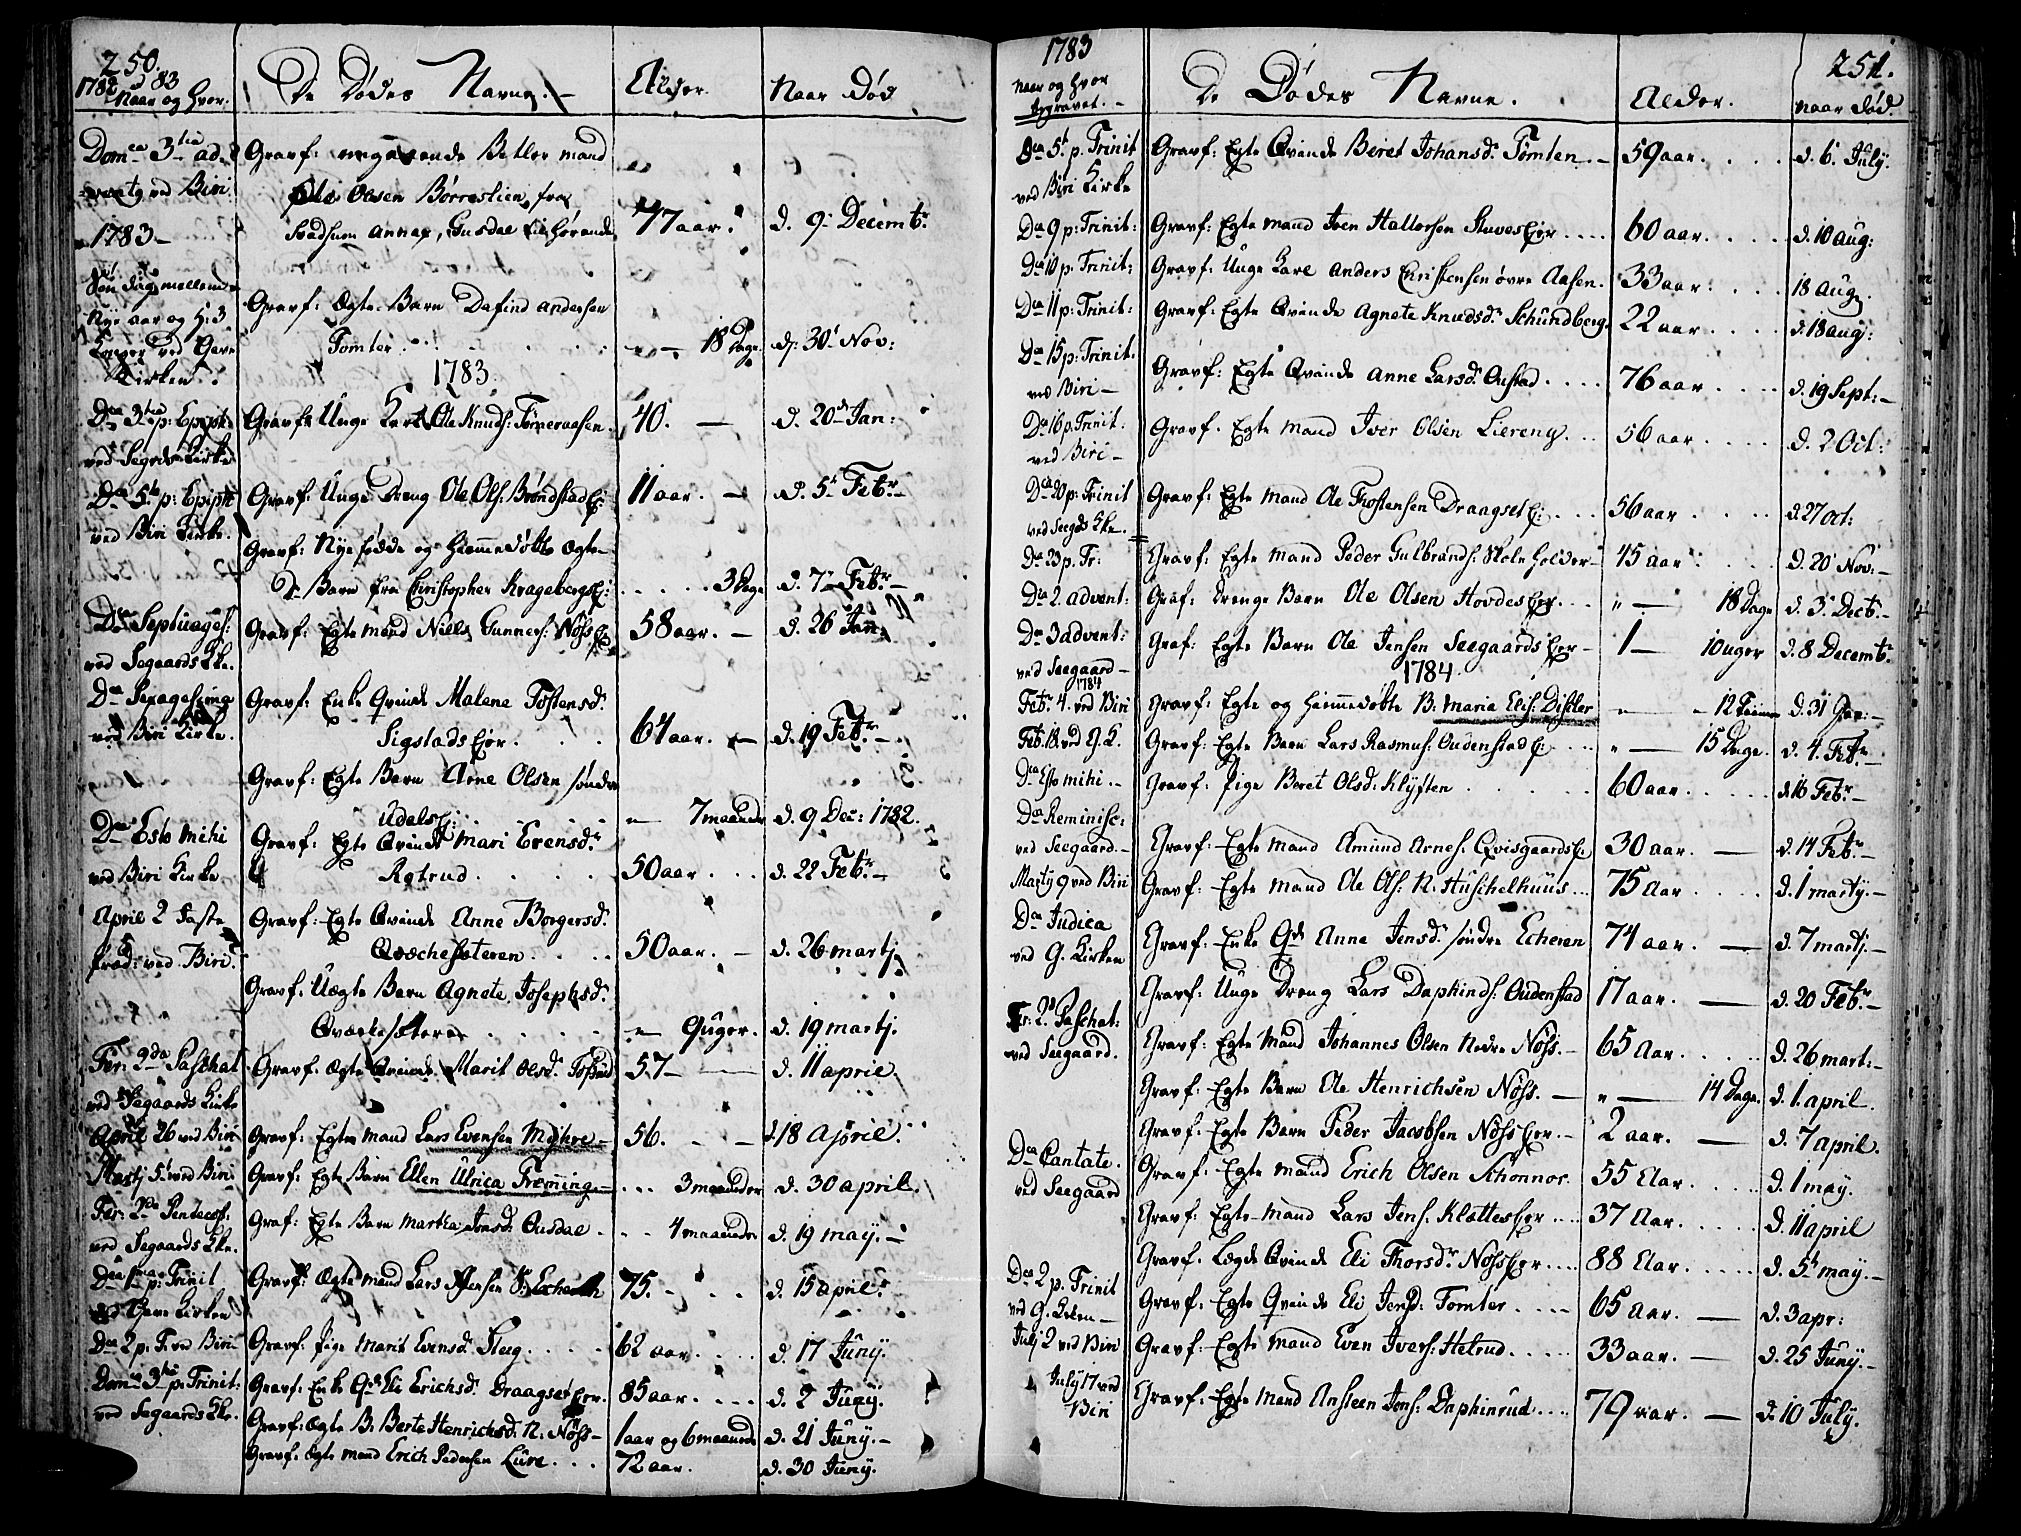 250.
1782 & 83
Naar og Hvor.
De Dødes Navne. -
Alder.
Naar Død
Domca 3tia ad-
ventg ved Biri
Gravf: omgaaende Betler mand
Ole Olsen Børreslien, fra
annex, Gusdal tilhørende
47 aar.
d. 9. Decembr.
1783 -
Søndag mellem
Nye aar og H: 3
Konger ved Gave
Kirken.
Gravf: Ægte Barn Dafind Andersen
Tomter . . .
18 Dage.
d. 30t Nov:
1783.
Dca 3tia p: Epiph:
ved Segards Kirke
Gravf: Unge Karl Ole Knuds: Tømeraasen.
40. -
d. 20de Jan:
Dca 5ta p: Epiph
ved Biri Kirke.
Gravf: Unge Dreng Ole Ols: Brøndstad Ej:
11 aar. -
d. 5t Febr. -
Gravf: Nye fødde og Hiemmedøbte Ægte
Barn fra Christopher Kragebergs Ej:
3 Dage
d. 7 Febr. -
Dca Septuages:
ved Segaards Kke.
Gravf: Egte mand Niels Gunners: Nøss Ej:
58 aar. -
d. 26 Jan:
Dca Sexagesima
ved Biri Kirke.
Gravf: Enke Qvinde Malene Tostensdr
Sigstads Ejer.
64 aar. -
d. 19 Febr. -
Gravf: Egte Barn Arne Olsen søndre
Udels Ej: . . .
7 maaneder
d. 9 Dec: 1782.
Dca Esto mihi
ved Biri Kirke
Gravf: Egte Qvinde Mari Evensdr
Røtrud . . .
50 aar. . .
d. 22 Febr. -
April 2 Faste
Præd: ved Biri.
Gravf: Egte Qvinde Anne Borgersdr
Qvæchesæteren . . .
50 aar. -
d. 26 martj
Gravf: Uægte Barn Agnete Josephsdr
Qvækesæteren . . .
9 uger.
d. 19 martj.
Fer: 2da Paschat
ved Segaards Kirke
Gravf: Ægte Qvinde Marit Olsdr Fossud
57 -
d. 11 april.
April 26 ved Biri
Gravf: Egte mand Lars Evensen Mæhre -
56. - -
d. 18 April.
Martj 5t ved Biri.
Gravf: Egte Barn Ellen Ulrica Fremming -
3 maaneder
d. 30 april.
Fer: 2da Pentecost:
ved Segaards Kke.
Graf: Egte Barn Martha Jensdr Onsdal .
4 maaneder
d. 19 may. -
Dca 1ma p: Trinit
ved Gave Kirken
Gravf: Ægte mand Lars Jensen S: Echeren
75. - . .
d. 15 april.
Dca 2 p: T: ved Biri
Gravf: Pige Marit Evensdr Skug . . . .
62 aar . . .
d. 17 Juny.
Domca 3tia p: Trinit:
ved Segaards Kke.
Gravf: Enke Qde Eli Erichsdr Draagset Ejer.
85 aar . . . .
d. 2 Juny.
Gravf: Ægte B: Berte Henrichsdr N: Nøss -
1 aar og 6 maaneder
d. 21 Juny. -
Gravf: Ægte mand Erich Pedersen Lure . . .
72 aar.
d. 30 Juny.
1783
Naar og Hvor
Begravet. -
De Dødes Navne.
Alder.
251.
Naar død.
Dca 5t p. Trinit
ved Biri Kirke
Gravf: Egte Qvinde Beret Johansdr Tømten . -
59 aar. . . .
d. 6. July.
Dca 9 p: Trinit:
Gravf: Egte mand Iven Hallorsen Stuves Ejer . . . .
60 aar. . . . .
d. 10 aug:
Dca 10 p: Trinit:
Gravf: Unge Karl Anders Christensen øvre Aasen.
33 aar: . . .
18 aug.
Dca 11 p: Trinit:
Gravf: Egte Qvinde Agnete Knudsdr Schundberg.
22 aar . . . .
d. 18 aug:
Dca 15 p: Trinit.
ved Biri -
Gravf: Egte Qvinde Anne Larsdr Onstad . . . .
76 aar . . . .
d. 19 Sept: -
Dca 16 p. Trinit.
ved Biri -
Gravf. Egte mand Iver Olsen Liereng . . .
56 aar . . . .
d. 2 Oct:
Dca 20 p: Trinit
ved Seegds Kke.
Gravf: Egte mand Ole Frostensen Draagset Ej: . . .
56 aar . . . .
d. 27 Oct:
Dca 23 p. Tr:
Gravf: Egte mand Peder Gulbrands: Skoleholder
45 aar . . . .
d. 20 Nov: -
Dca 2. advent:
Graf: Drenge Barn Ole Olsen Hovdes Ejer . . .
" - 18 Dage
d. 3t Decb. -
Dca 3 advent:
ved Seegaard -
Graf: Egte Barn Ole Jensen Seegaards Ejer -
1 - 10 uger
d. 8 Decembr
1784
1784.
Febr. 4. ved Biri
Gravf: Egte og hiemmedøbte B. Maria Elis: Distler
- 12 Timer
d. 31 Jan: -
Feb: 18 ved G. K.
Gravf: Egte Barn Lars Rasmus: Oudenstad Ej: . . .
" - 15 Dage.
d. 4. Febr. -
Dca Esto mihi. -
Gravf: Pige Beret Olsdr Klyften . . . .
60 aar. . . .
d. 16 Febr. -
Dca Reminisc:
ved Seegaard. -
Gravf: Egte mand Amund Arnes: Qvisgaards Ej:
30 aar. -
d. 14 Febr. -
Martij 9 ved Biri
Gravf: Egte mand Ole Ols: N. Huschelhuus . . .
75 Aar . . . .
d. 1 marty. -
Dca Judica
ved G. Kirken
Gravf: Enke Qde Anne Jensdr søndre Echeren
74 aar. -
d. 7 martj. -
Gravf: Unge Dreng Lars Daphinds: Oudenstad
17 aar. -
d. 20 Febr. -
Fer: 2da Paschat:
ved Seegaard.
Gravf: Egte Mand Johannes Olsen Nedre Nøss. -
65 Aar. . . . .
d. 26 mart: -
Gravf: Egte Barn Ole Henrichsen Nøss. -
" - 14 Dage.
d. 1. april.
Gravf: Egte Barn Peder Jacobsen Nøss Ejer. -
2 aar. -
d. 7 april.
Dca Cantate.
ved Seegaard
Gravf: Egte mand Erich Olsen Schonnor.
55 Aar. . . . .
d. 1 may.
Gravf: Egte mand Lars Jens: Klættes Ejer . . . .
37 Aar. . . . .
d. 11 april
Gravf: Lægds Qvinde Eli Thorsdr Nøss Ejer . . . .
88 Aar. . . . .
d. 5t may. -
Dca 2 p. Trinit
ved G. Kirken -
Gravf: Egte Qvinde Eli Jensdr Tomter . . . . -
65 Aar. -
d. 3 apr:
Julj 2 ved Biri
Gravf: Egte mand Even Ivers: Helrud . . . . .
33 aar. -
d. 25 Juny. -
July 17 ved
Biri
Gravf: Egte mand Ansteen Jons: Daphinrud . . . .
79 aar. -
d. 10 July.